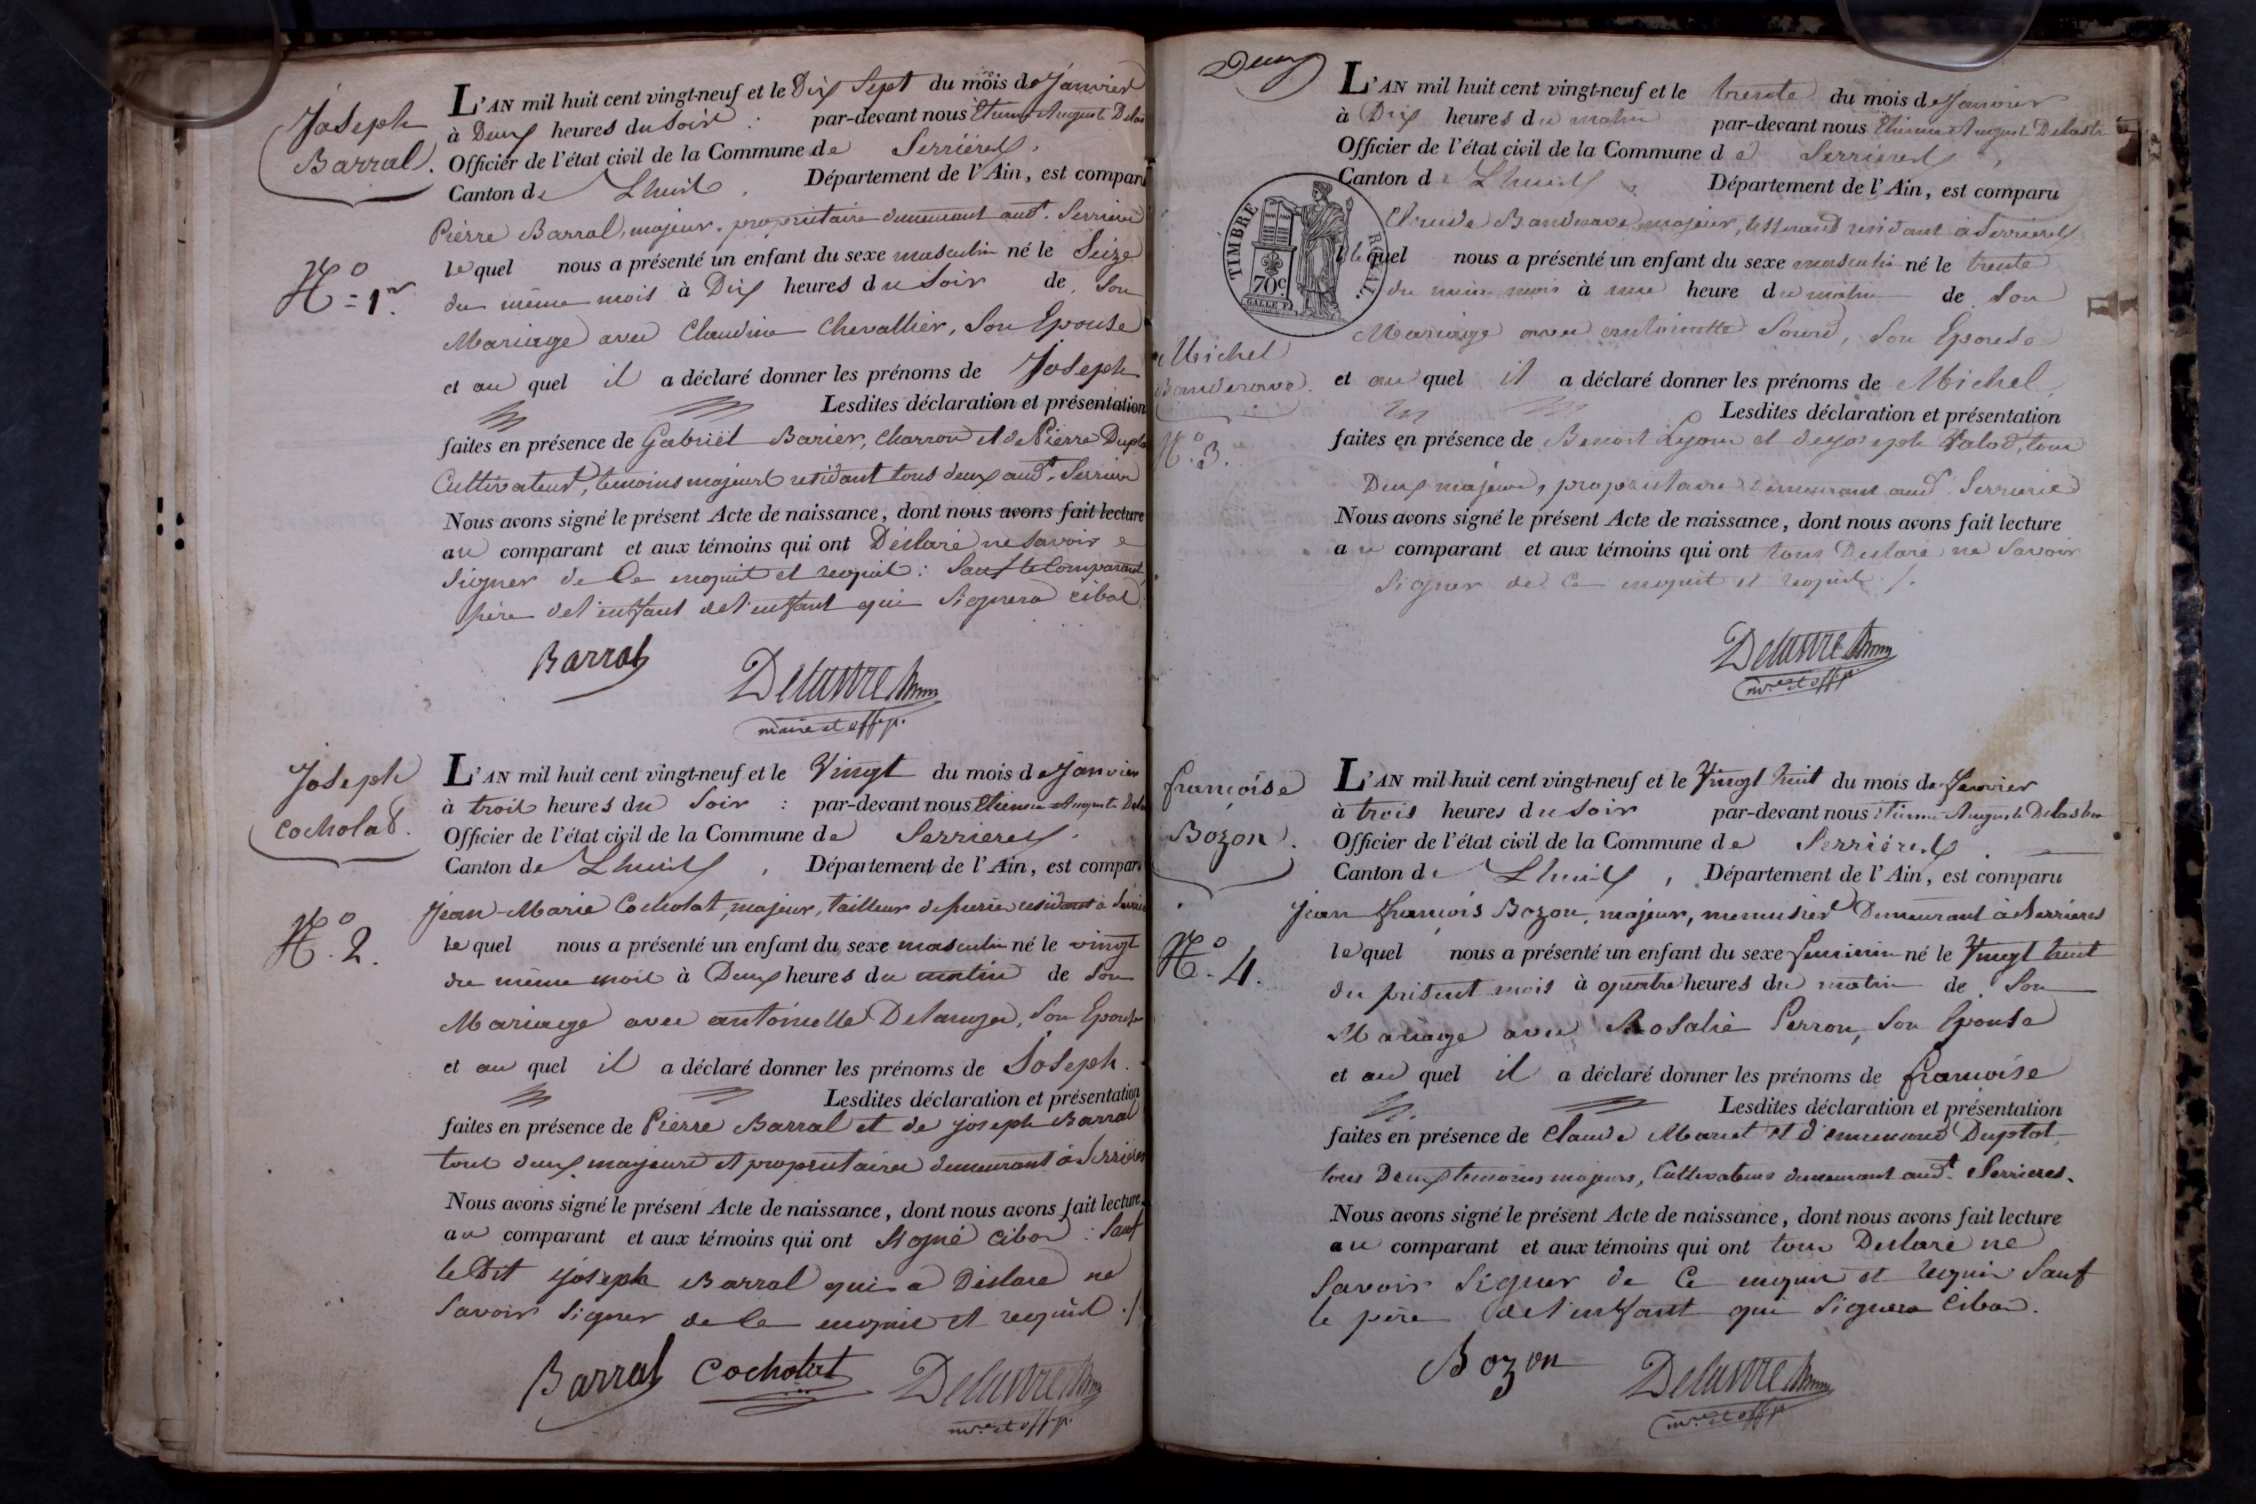 Joseph
Barral.
N.o = 1er.
L'AN mil huit cent vingt-neuf et le Dix Sept du mois de Janvier
à Deux heures du Soir : par-devant nous Etienne Auguste
Officier de l'état civil de la Commune de Serrières.
Canton de Lhuis, Département de l'Ain, est comparu
Pierre Barral, majeur, propriétaire demeurant aud.t Serrieres
lequel nous a présenté un enfant du sexe masculin né le Seize
du même mois à Dix heures du Soir de Son
Mariage avec Claudine Chevallier, Son Epouse
et au quel il a déclaré donner les prénoms de Joseph
Lesdites déclaration et présentation
faites en présence de Gabriel Barier, charron et de Pierre
Cultivateurs, temoins majeurs residant tous deux aud.t Serrieres
Nous avons signé le présent Acte de naissance, dont nous avons fait lecture
au comparant et aux témoins qui ont Déclaré ne Savoir
Signer de Ce enquit et requit : Sauf le Comparant
père de l'enffant de l'enffant qui Signera cibas
Barral
Delastre
maire et off. p.
Joseph
Cocholat.
N.o 2.
L'AN mil huit cent vingt-neuf et le Vingt du mois de Janvier
à trois heures du Soir : par-devant nous Etienne Auguste
Officier de l'état civil de la Commune de Serrieres.
Canton de Lhuis, Département de l'Ain, est comparu
Jean-Marie Cocholat, majeur, tailleur de residant à
lequel nous a présenté un enfant du sexe masculin né le vingt
du même mois à Deux heures du matin de Son
Mariage avec antoinette Son Epouse
et au quel il a déclaré donner les prénoms de Joseph.
Lesdites déclaration et présentation
faites en présence de Pierre Barral et de joseph Barral
tous deux majeurs et propriétaires demeurant à Serrieres
Nous avons signé le présent Acte de naissance, dont nous avons fait lecture
au comparant et aux témoins qui ont Signé cibas : Sauf
le Dit joseph Barral qui a Déclaré ne
Savoir Signer de Ce enquit et requit ./.
Barral Cocholat Delastre
mre et off. p.
Deux
TIMBRE ROYAL.
70c
Michel
Banderave.
N.o 3.
L'AN mil huit cent vingt-neuf et le trente du mois de Janvier
à Dix heures du matin par-devant nous Etienne Auguste Delastre
Officier de l'état civil de la Commune de Serrieres,
Canton de Lhuis Département de l'Ain, est comparu
Claude majeur, tisserand residant à Serrieres
lequel nous a présenté un enfant du sexe masculin né le trente
du même mois à une heure du matin de Son
Mariage avec antoinette Son Epouse
et au quel il a déclaré donner les prénoms de Michel
Lesdites déclaration et présentation
faites en présence de Benoit et de joseph tous
Deux majeurs, propriétaires demeurant aud.t Serrieres
Nous avons signé le présent Acte de naissance, dont nous avons fait lecture
au comparant et aux témoins qui ont tous Déclaré ne Savoir
Signer de Ce enquit et requit ./.
Delastre
mre et off. p.
françoise
Bozon.
N.o 4.
L'AN mil huit cent vingt-neuf et le Vingt huit du mois de
à trois heures du Soir par-devant nous Etienne Auguste Delastre
Officier de l'état civil de la Commune de Serrières.
Canton de Lhuis, Département de l'Ain, est comparu
Jean françois Bozon, majeur, menusier Demeurant à Serrieres
lequel nous a présenté un enfant du sexe feminin né le Vingt huit
du présent mois à quatre heures du matin de Son
Mariage avec Rosalie Perron, Son Epouse
et au quel il a déclaré donner les prénoms de françoise
Lesdites déclaration et présentation
faites en présence de Claude et d'ennemond Duplat
tous Deux temoins majeurs, Cultivateurs demeurant aud.t Serrieres.
Nous avons signé le présent Acte de naissance, dont nous avons fait lecture
au comparant et aux témoins qui ont tous Déclaré ne
Savoir Signer de Ce enquis et requis Sauf
le père de l'enffant qui Signera Cibas.
Bozon Delastre
mre et off. p.